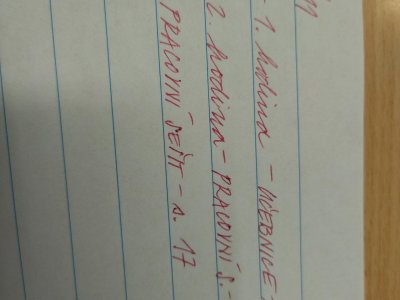 - 1. hodina - UČEBNICE -
2. hodina - PRACOVNÍ S. -
PRACOVNÍ SEŠIT - s. 17